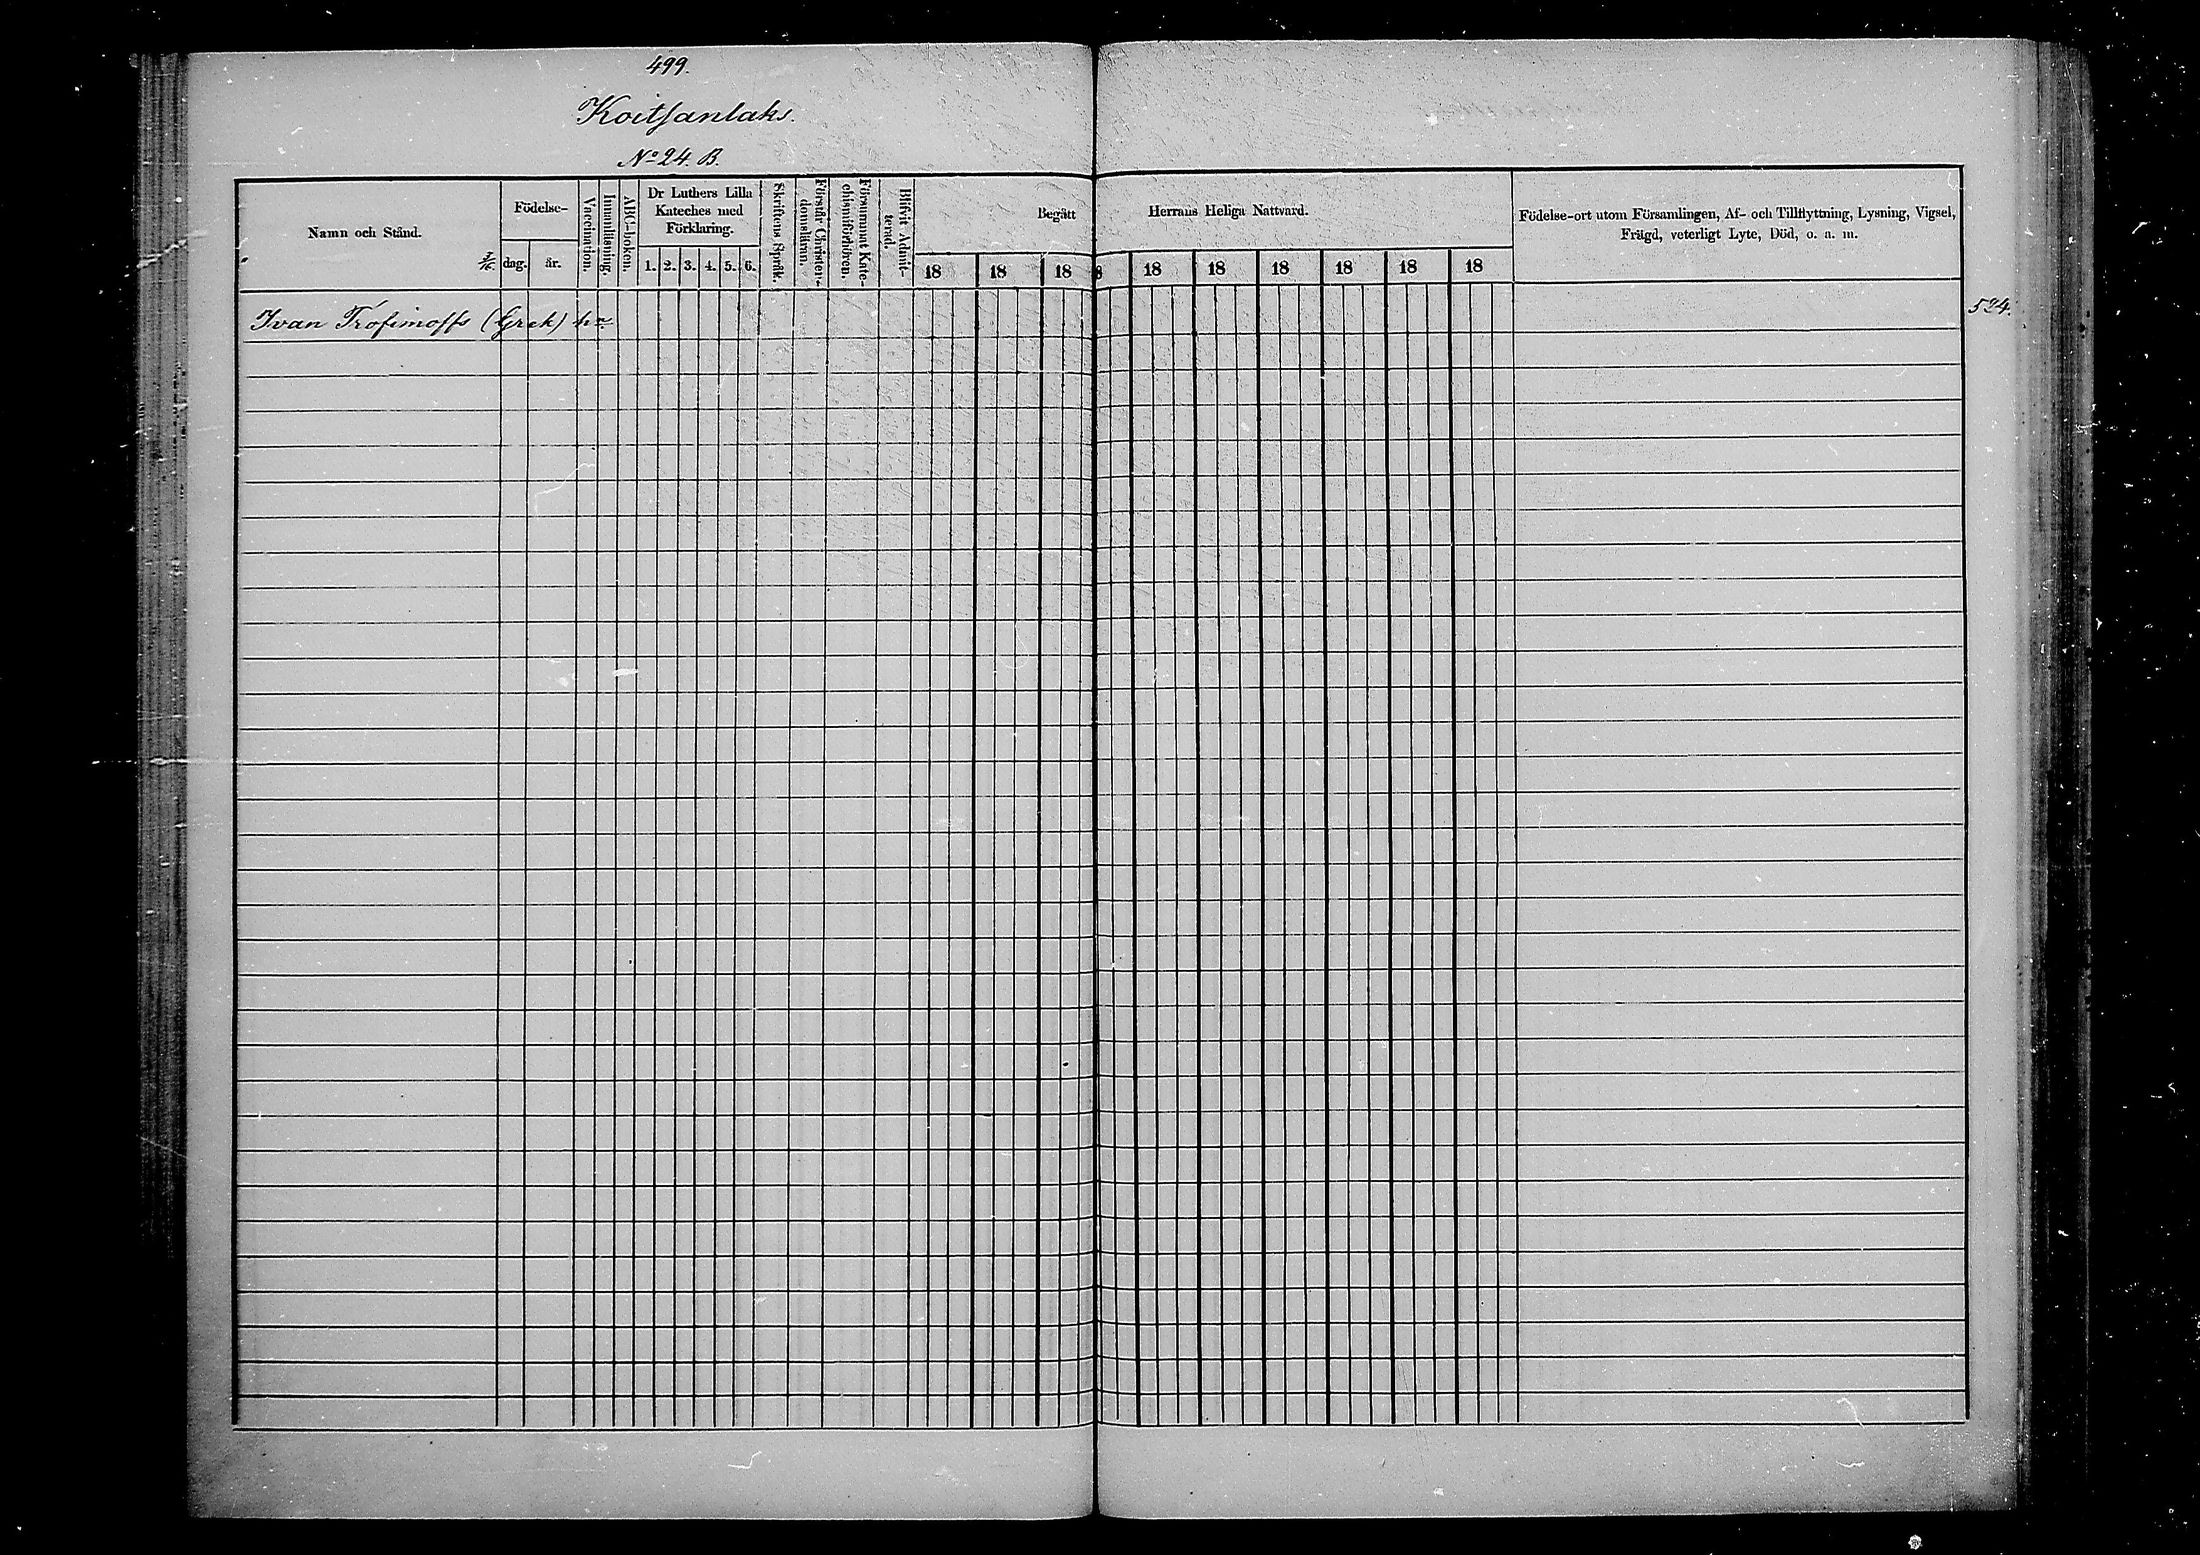 499.
Koitsanlaks.
No 24. B.
Namn och Stånd.
3/16.
Födelse-
dag.
år.
Vaccination.
Innanläsning.
ABC-boken.
Dr Luthers Lilla
Kateches med
Förklaring.
1. 2. 3. 4. 5. 6.
Skriftens Språk.
Förstår Christen-
domslämn.
Försummat Kate-
chismiförhören.
Blifvit Admit-
terad.
Begått Herrans Heliga Nattvard.
18 18 18 18 18 18 18 18 18
Födelse-ort utom Församlingen, Af- och Tillflyttning, Lysning, Vigsel,
Frägd, veterligt Lyte, Död, o. a. m.
Ivan Trofimoffs (Grek) hn 524.